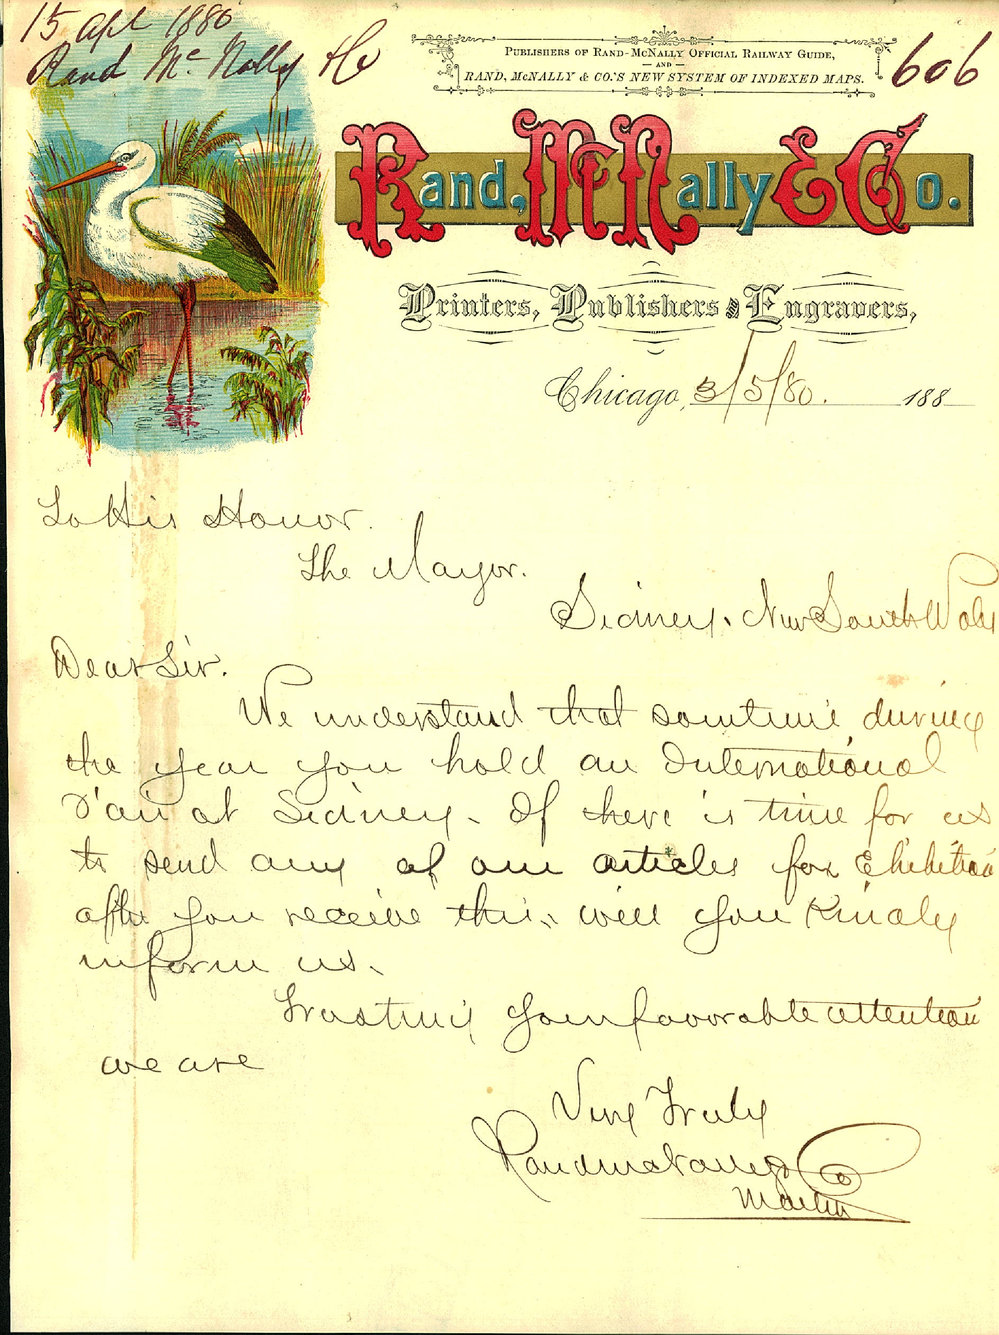 15 Apl 1880
Rand Mc Nally & Co
606
PUBLISHERS OF RAND-McNALLY OFFICIAL RAILWAY GUIDE,
— AND —
RAND, McNALLY & CO.'S NEW SYSTEM OF INDEXED MAPS.
Rand, McNally & Co.
Printers, Publishers and Engravers,
Chicago, 3/5/80. 188
To His Honor.
The Mayor.
Sidney. New South Wales
Dear Sir.
We understand that sometime during
the year you hold an International
Fair at Sidney. If there is time for us
to send any of our articles for Exhibition
after you receive this, will you Kindly
inform us.
Trusting your favorable attention
we are
Very Truly
Rand McNally & Co
Martin